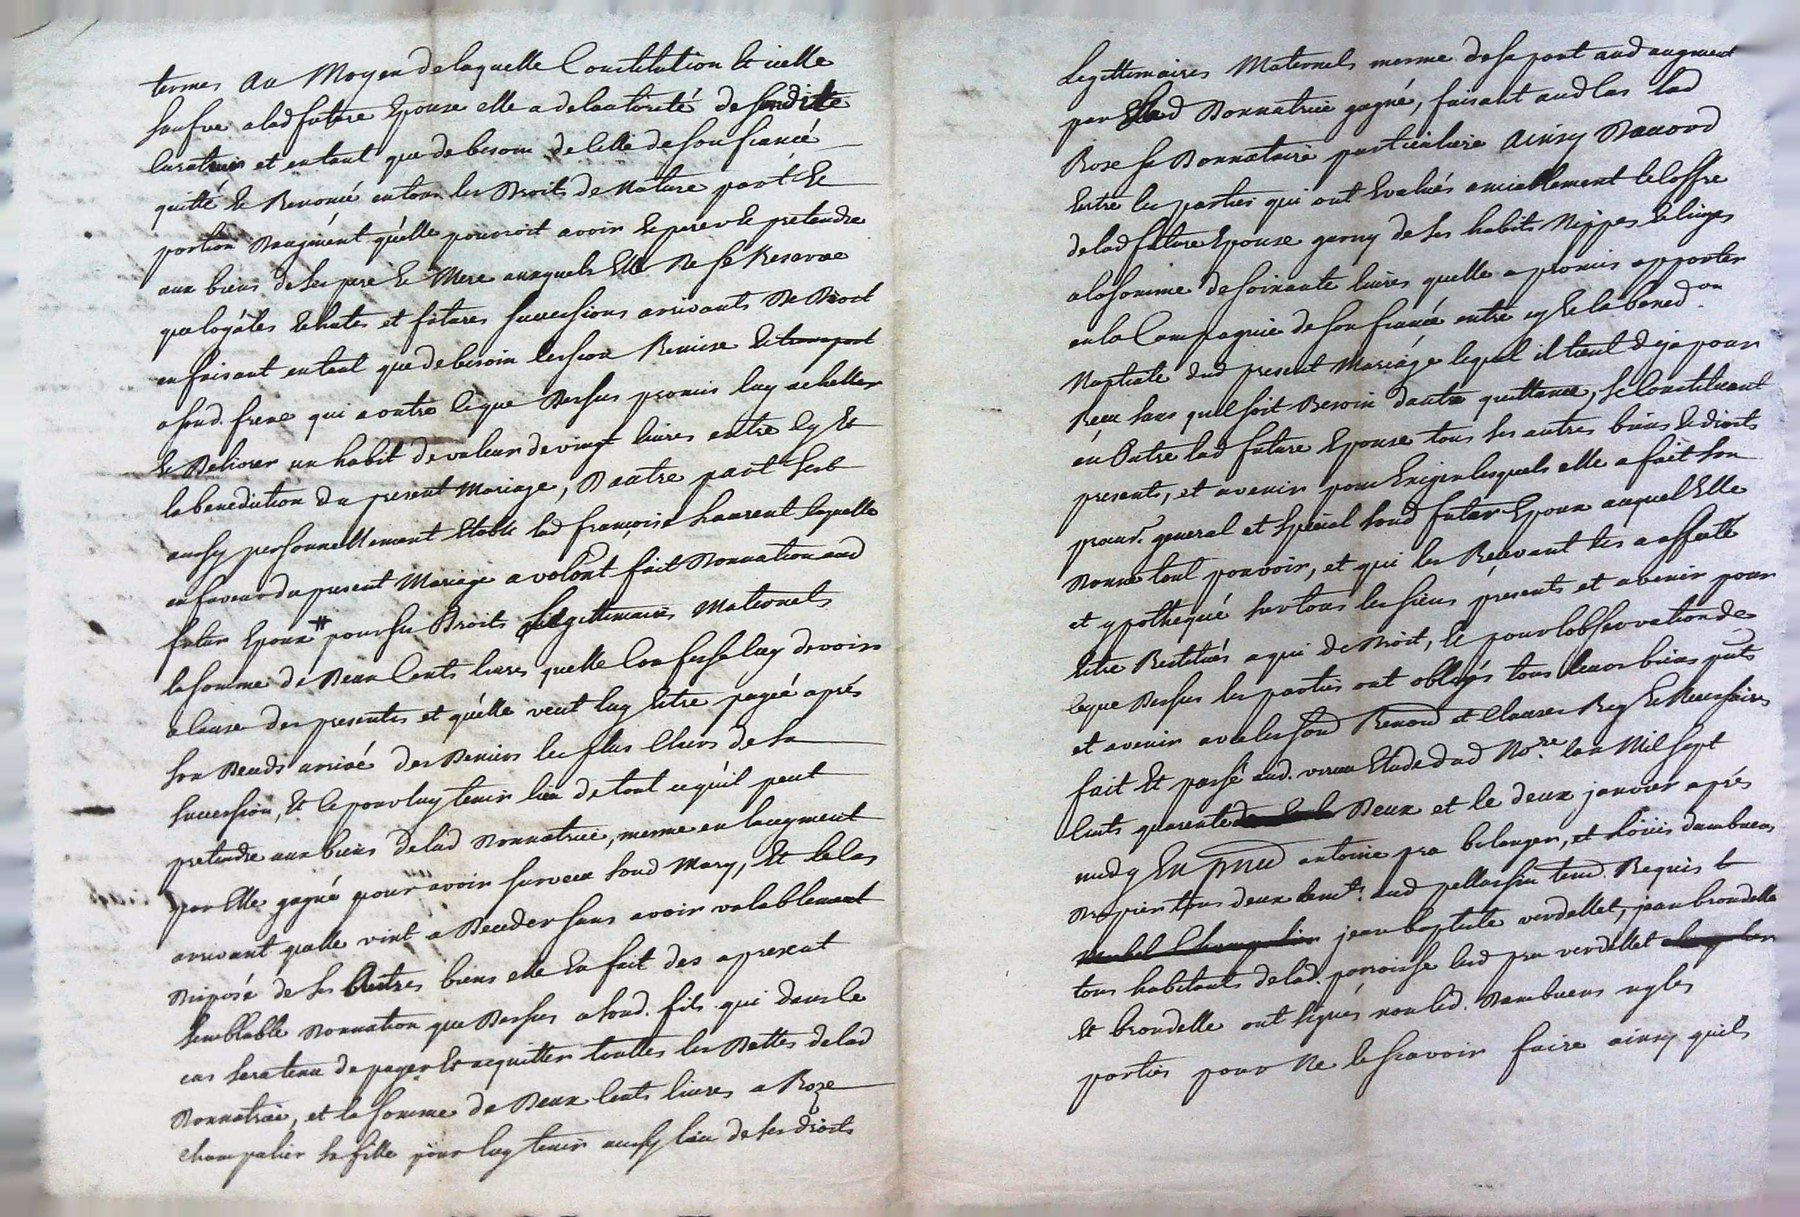 termes au moyen de laquelle Constitution et icelle
soufre alad future Epouse elle a de lautorité de sondit
Curateur et entant que de besoin de celle de son fiancé
quitté et Renoncé en tous les Droits de Nature part et
portion Daugment qu'elle pourroit avoir et pretendre
aux biens de ses pere et Mere auxquels Elle Ne se Reserve
que loyales echutes et futures successions arivants De Droit
en faisant entant que de besoin cession Remise et transport
asond. frere qui a outre ceque Dessus promis luy achetter
et Delivrer un habit de valeur de vingt livres entre cy et
la benediction du present Mariage, D'autre part sest
aussy personnellement Etablie lad françoise Laurent laquelle
en faveur du present Mariage a volont fait Donnation aud
futur Epoux # pour ses Droits Legittimaires Maternels
la somme de Deux Cents livres quelle Confesse luy devoir
a cause des presentes et qu'elle veut luy Estre payée aprés
son Deceds arrivé des Deniers les plus Clairs de sa
succession, et ce pour luy tenir lieu de tout ce qu'il peut
pretendre aux biens delad Donnatrice, mesme en laugment
par Elle gagné pour avoir survecu soud Mary, Et le cas
arrivant qu'elle vint a Deceder sans avoir valablement
Disposé de ses Autres biens elle En fait des apresent
semblable Donnation que Dessus a soud. fils qui dans ce
cas sera tenu de payer et acquitter touttes les Dettes delad
Donnatrice, et la somme de Deux Cents livres a Roze
Champalier sa fille pour luy tenir aussy lieu de ses droits
Legittimaires Maternels mesme de sa part aud augment
par lad Donnatrice gagné, faisant aud Cas lad
Roze sa Donnataire particuliere Ainsy D'accord
Entre les parties qui ont Evalués amiablement le Coffre
delad future Epouse garny de ses habits Nippes et linges
ala somme de soixante livres quelle a promis apporter
en la Compagnie de son fiancé entre cy et la bened.on
Nuptiale dud present Mariage lequel il tient deja pour
Reçu sans qu'il soit Besoin dautre quittance, se Constituant
en Outre lad future Epouse tous ses autres biens et droits
presents, et avenir pour Exiger lesquels elle a fait son
procur. general et special soud futur Epoux auquel Elle
Donne tout pouvoir, et qui les Recevant les a affecté
et ypothequé sur tous les siens presents et avenir pour
Estre Restitués a qui de Droit, Et pour lobservation de
ceque Dessus les parties ont obligés tous leurs biens pnts
et avenir avec les soud Renond et Clauses Req et Necessaires
fait Et passé aud. vernu Etude dud No.re lan Mil sept
Cents quarente Deux et le deux janvier aprés
midy En pnce antoine pra bolanger, et Loüis dambuens
Drapier tous deux demt. aud pellussin temd. Requis et
jean baptiste verdellet, jean brondelle
tous habitants delad. parroisse lesd pra verdellet
Et brondelle ont signés non led. Dambuens ny les
parties pour Ne le scavoir faire ainsy quils